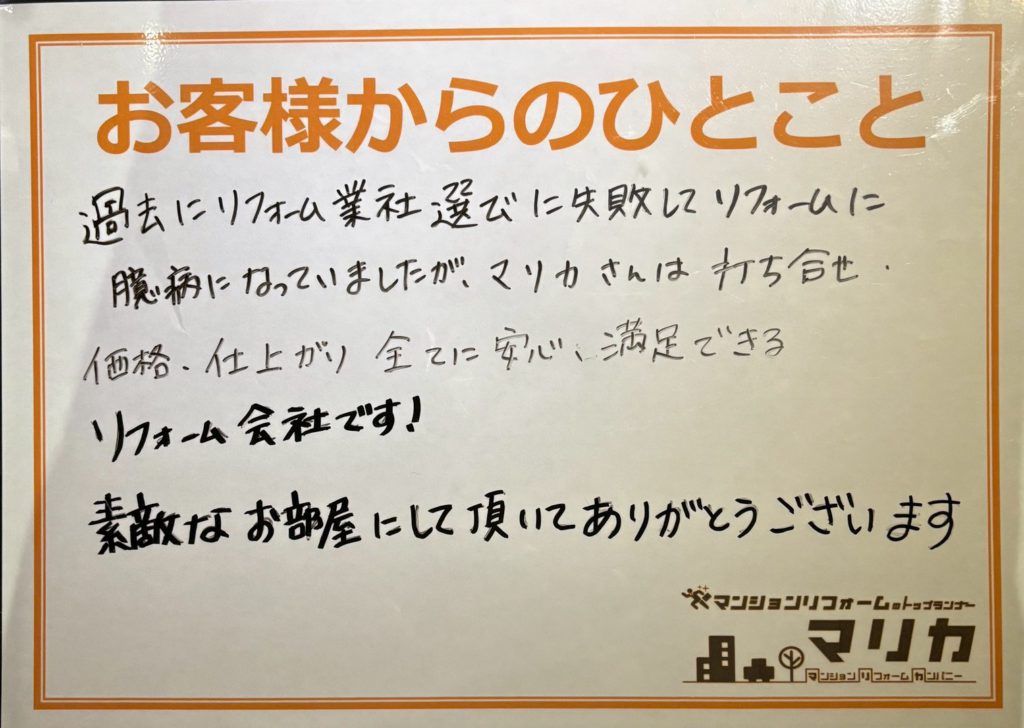 お客様からのひとこと
過去にリフォーム業社選びに失敗してリフォームに
臆病になっていましたが、マリカさんは打ち合せ.
価格、仕上がり全てに安心、満足できる
リフォーム会社です!
素敵なお部屋にして頂いてありがとうございます
マンションリフォームのトップランナー
マリカ
マンションリフォームカンパニー